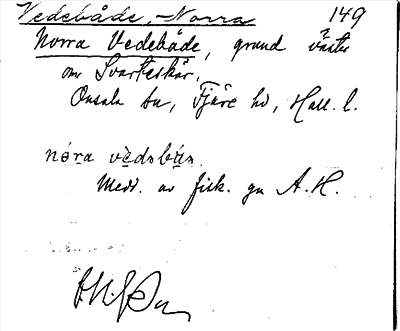 Vedebåde, Norra 149
Norra Vedebåde, grund väster
om Svarteskär,
Onsala sn, Fjäre hd, Hall. l.
nóra vèdnbún.
Medd. av fisk. gm A.H.